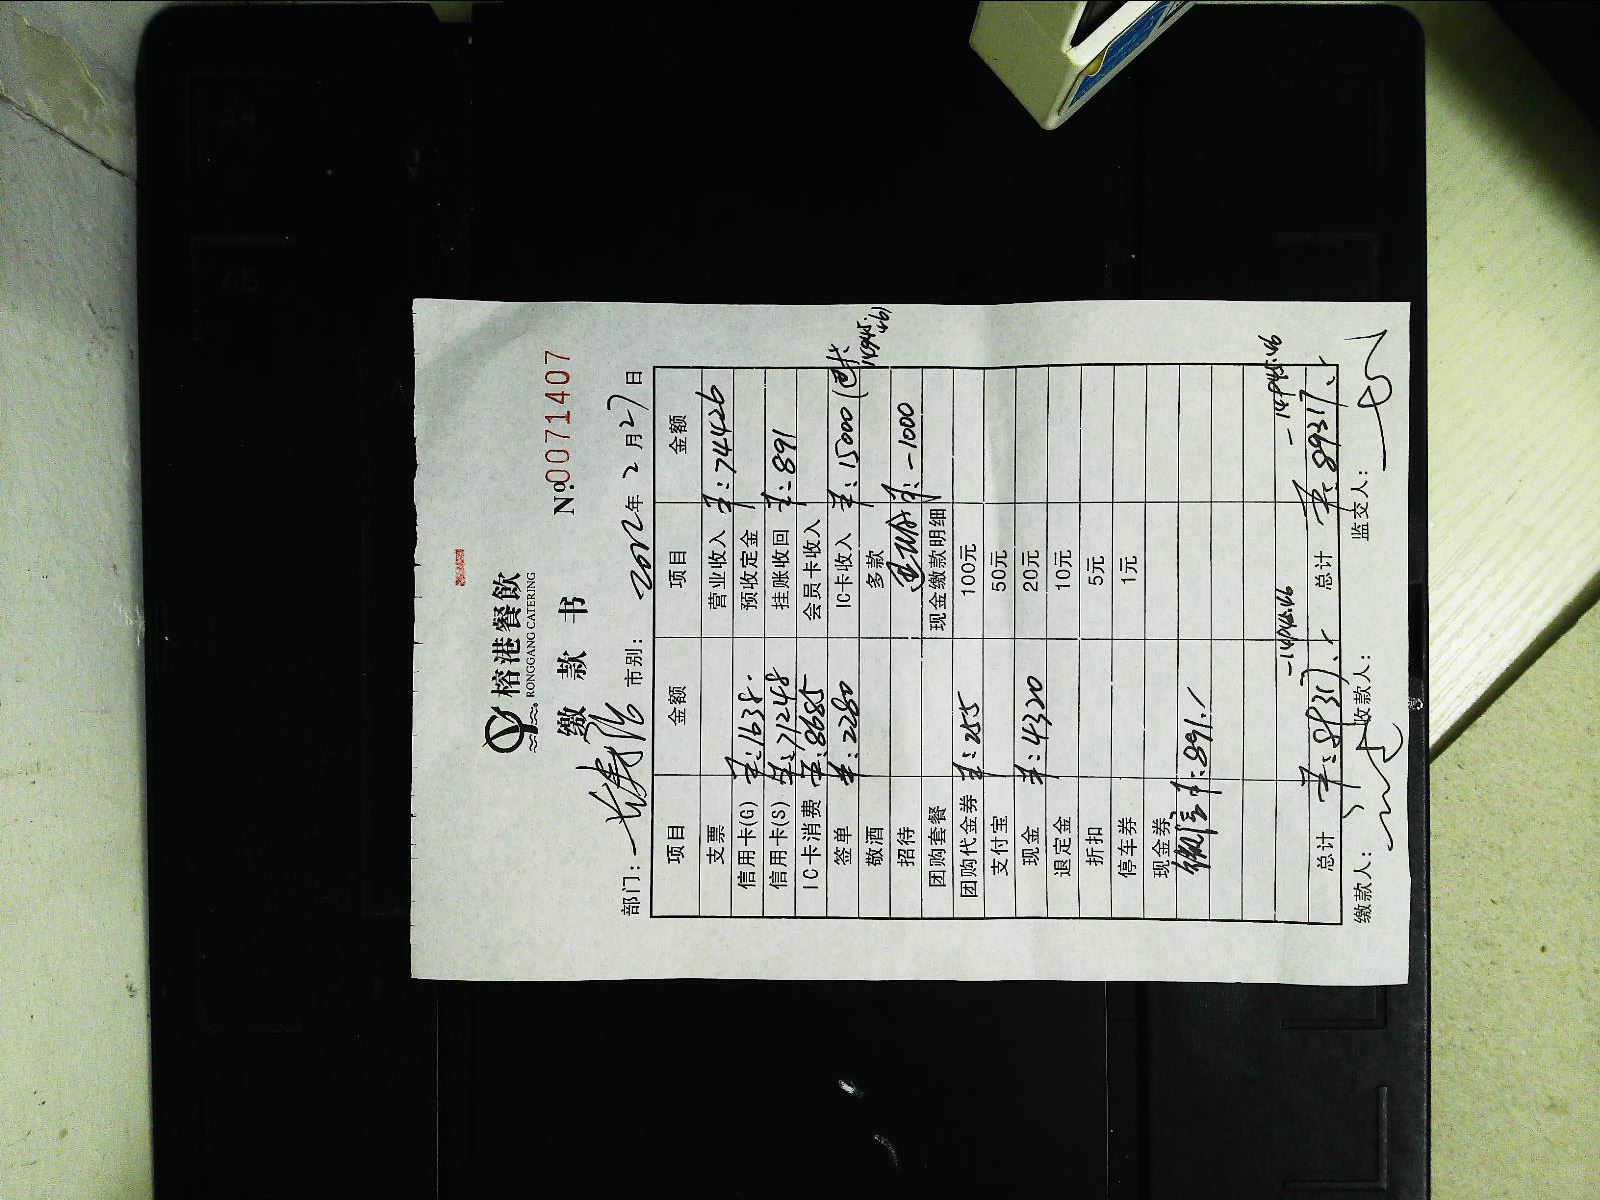 榕港餐飲
RONGGANG CATERING
缴款书 Nº.0071407
部门: 市别: 2022年2月27日
项目 金额 项目 金额
支票 营业收入 ¥:74426
信用卡(G) ¥:1638. 预收定金
信用卡(S) ¥:71248 挂账收回 ¥:891
IC卡消费 ¥:8685 会员卡收入
签单 ¥:2280 IC卡收入 ¥:15000
14945.46)
敬酒 多款
招待 ¥:-1000
团购套餐 现金缴款明细
团购代金券 ¥:255 100元
支付宝 50元
现金 ¥:4320 20元
退定金 10元
折扣 5元
停车券 1元
现金券
微信 ¥:891.
-14945.46 -14945.46
总计 ¥:89317. 总计 ¥:89317.
缴款人: 收款人: 监交人: